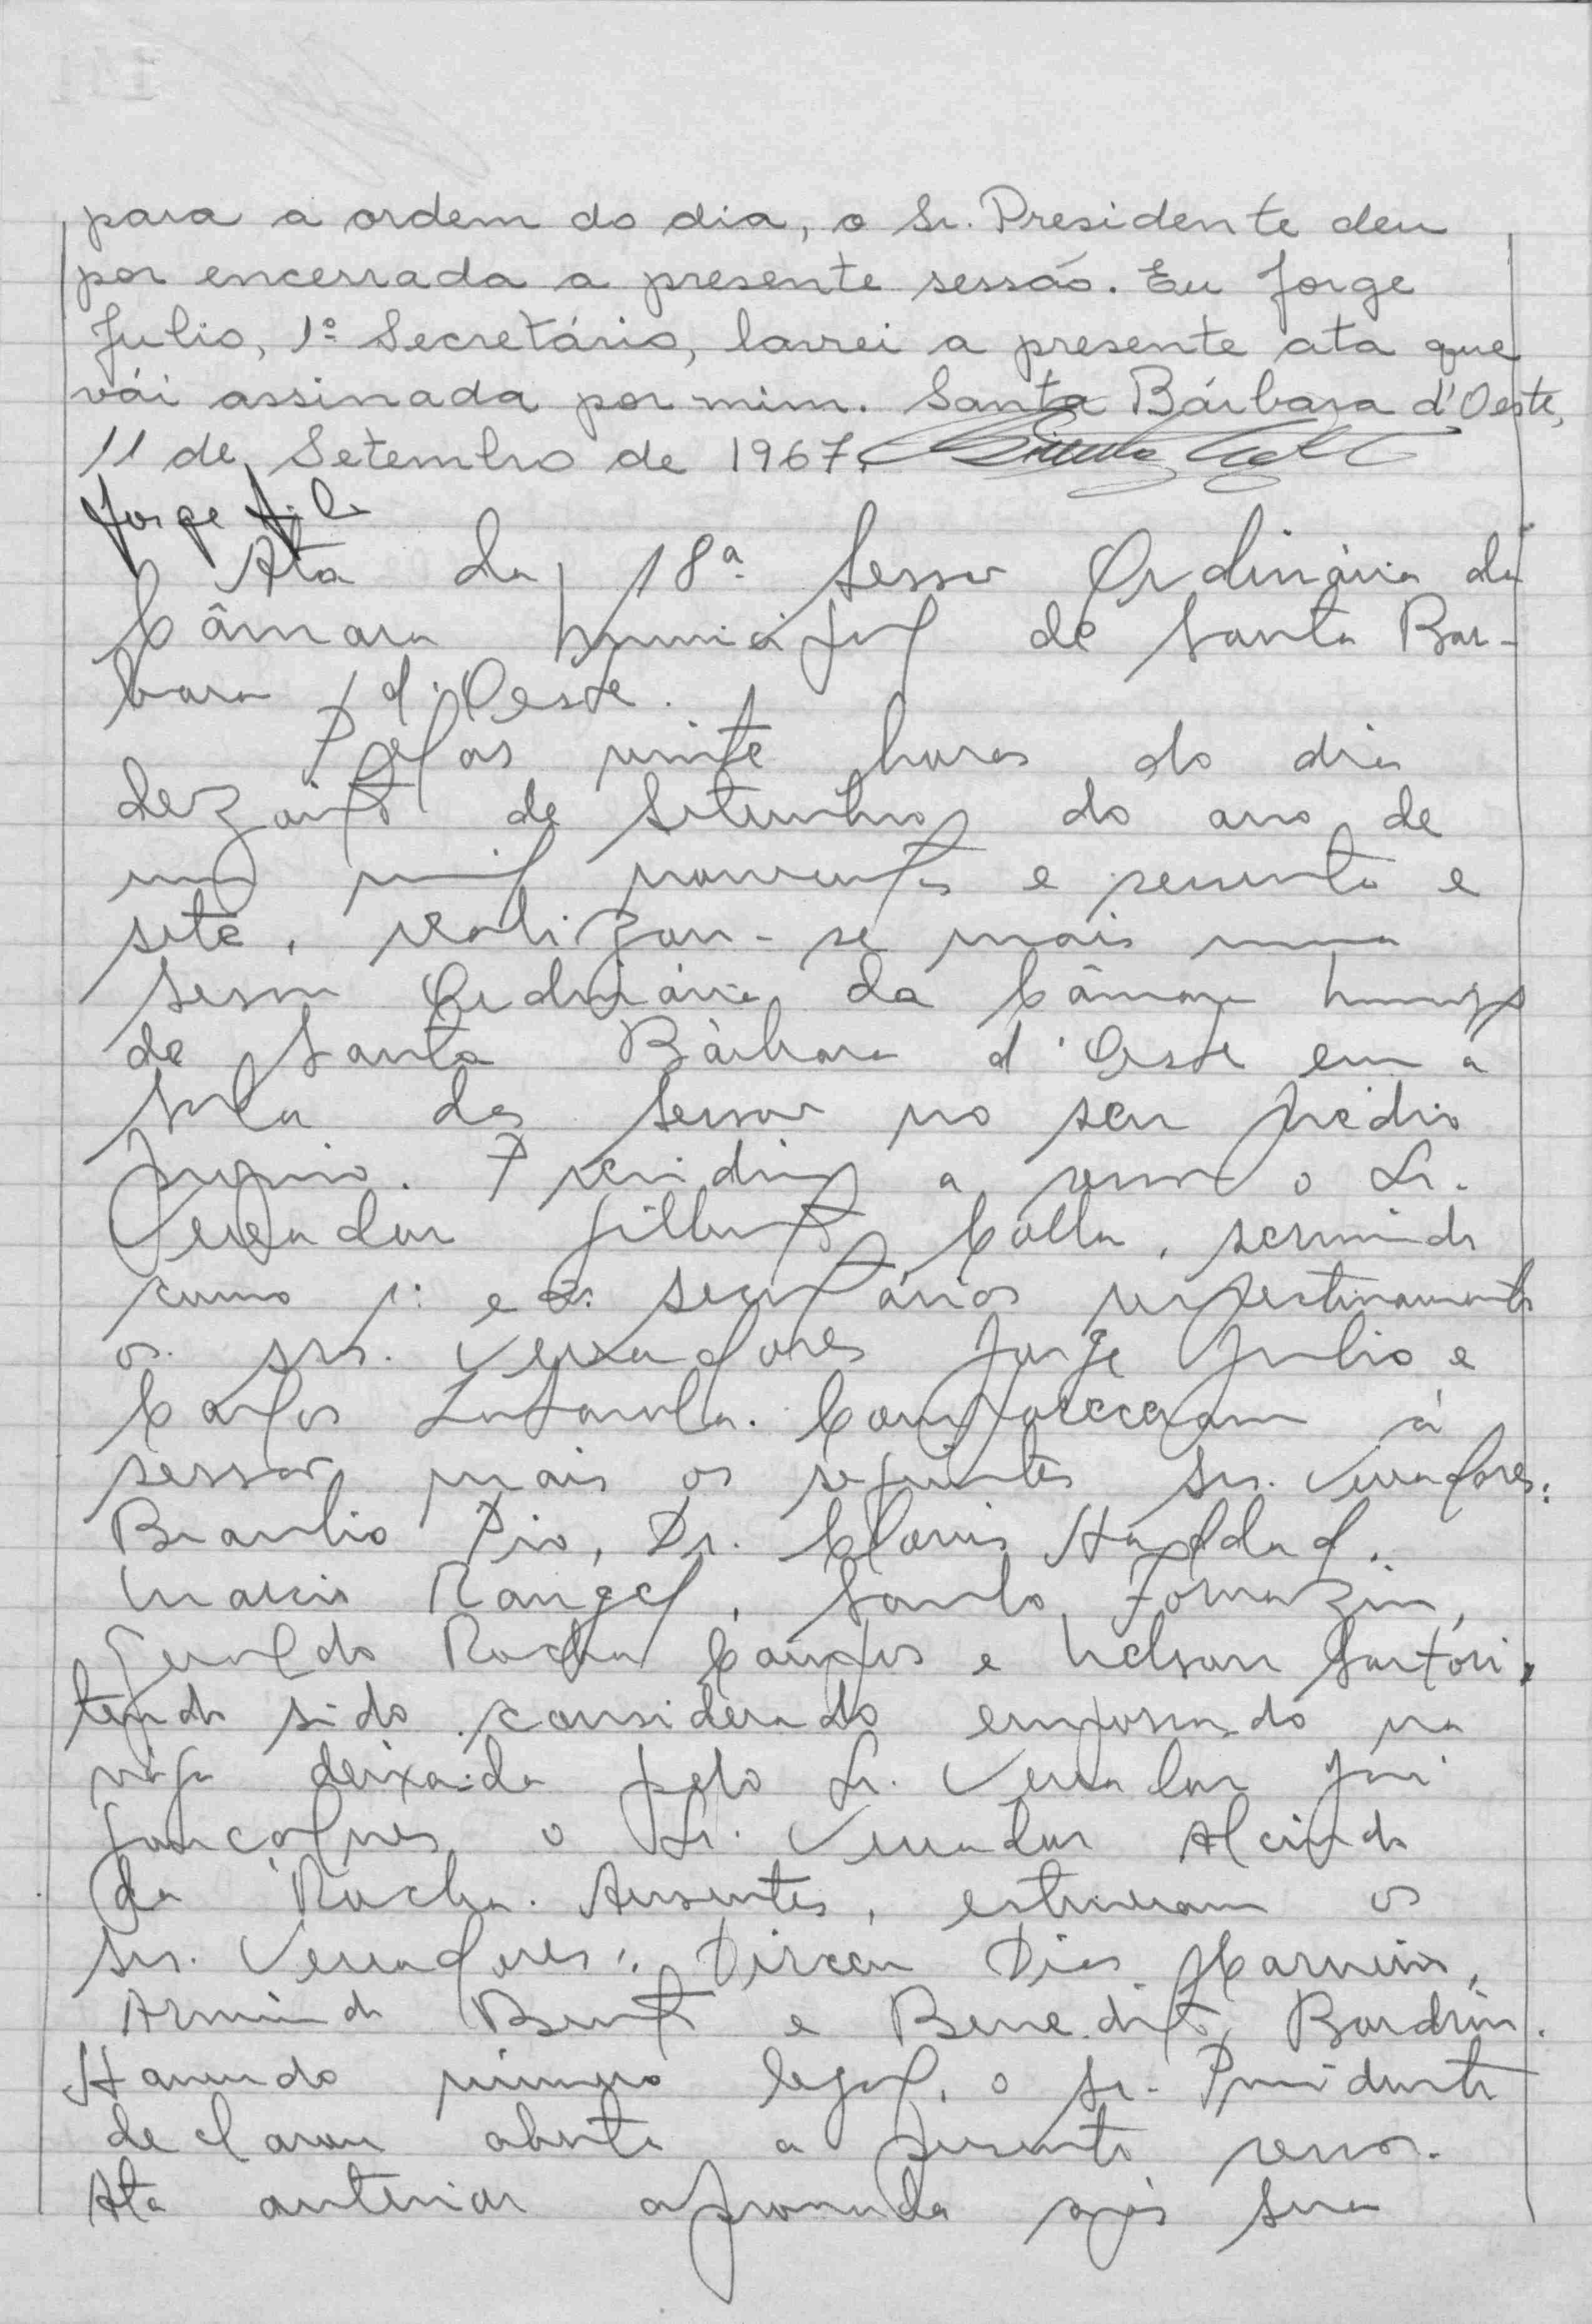 para a ordem do dia, o Sr. Presidente deu
por encerrada a presente sessão. Eu Jorge
Julio, 1º Secretário, lavrei a presente ata que
vái assinada por mim. Santa Bárbara d'Oeste,
11 de Setembro de 1967.
Jorge Julio
Ata da 18ª Sessão Ordinária da
Câmara Municipal de Santa Bar-
bara d'Oeste.
Pelas vinte horas do dia
dezoito de Setembro do ano de
mil novecentos e sessenta e
sete, realizou-se mais uma
Sessão Ordinária da Câmara
de Santa Bárbara d'Oeste em a
Sala das Sessões no seu prédio
próprio. Presidiu a sessão o Sr.
Vereador Gilberto Calla, servindo
como 1º e 2º secretários respectivamente
os srs. Vereadores Jorge Julio e
Carlos. Compareceram à
sessão mais os seguintes Srs. Vereadores:
Braulio Pio, Dr. Clovis Haddad,
Marcio Rangel, Santo Fornazin,
Geraldo Rocha Campos e Nelson Sartóri,
tendo sido considerado empossado na
vaga deixada pelo Sr. Vereador José
Gonçalves o Sr. Vereador Alcindo
da Rocha. Ausentes, estiveram os
Srs. Vereadores: Dirceu Dias Carneiro,
Armindo e Benedito.
Havendo número legal, o Sr. Presidente
declarou aberta a presente sessão.
Ata anterior aprovada após sua